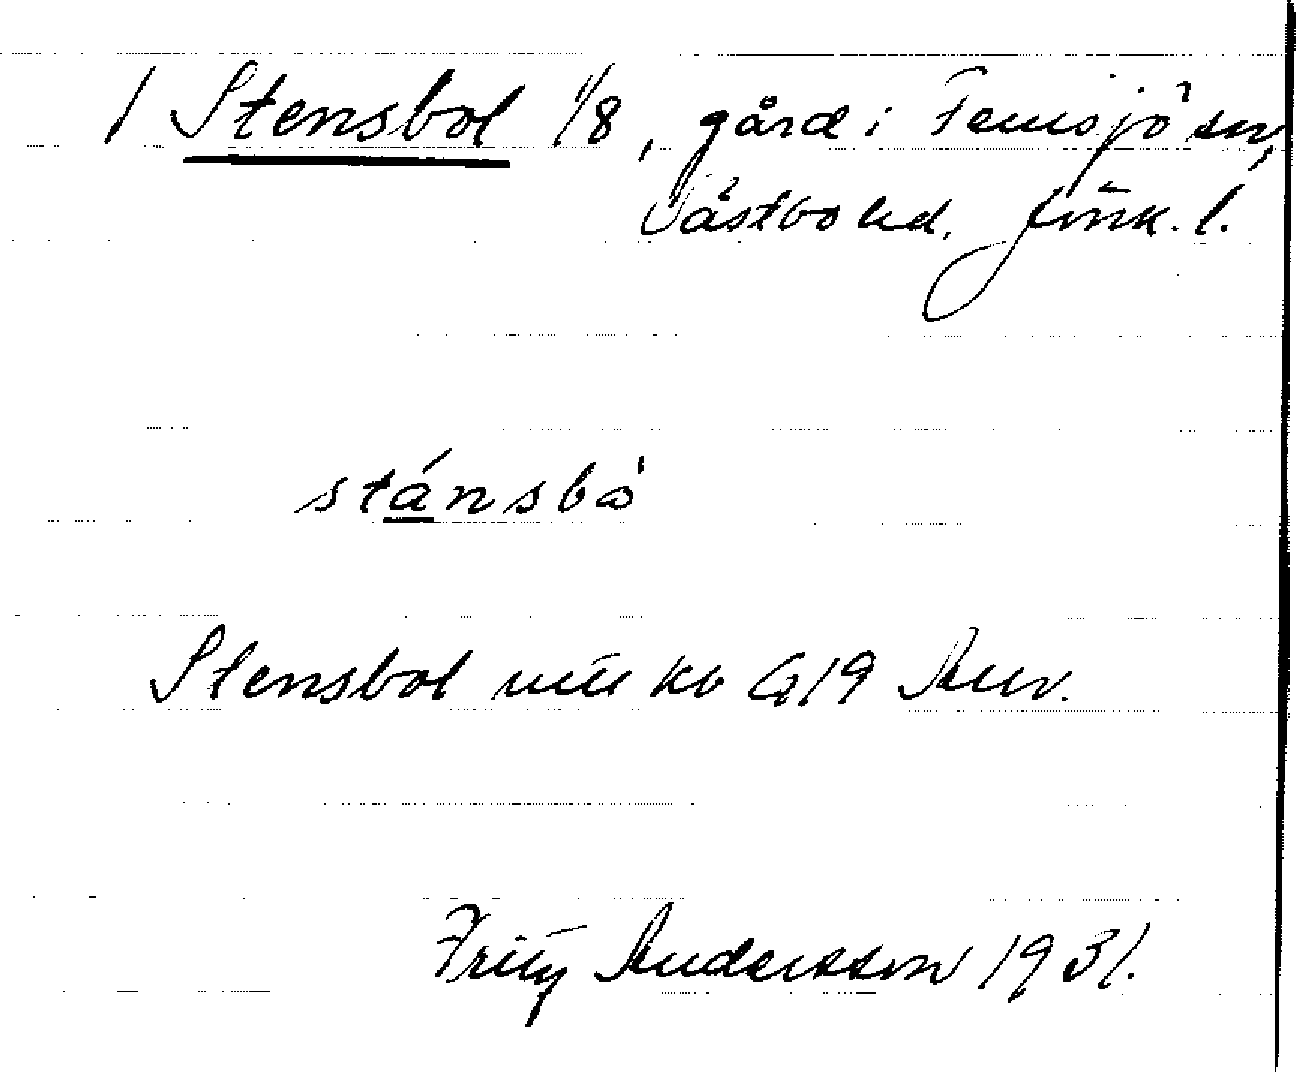 1 Stensbol 1/8, gård i Femsjö sn,
Västbo hd. Jönk. l.
stánsbå
Stensbol utt. kb G19 Anv.
Fritz Andersson 1931.